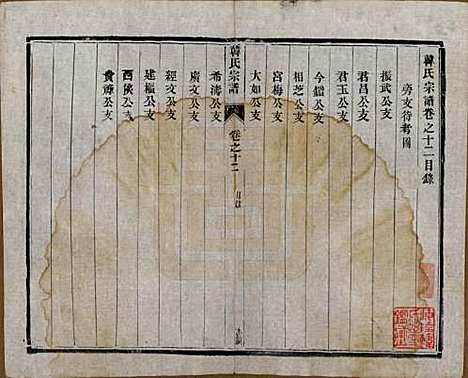 韓氏宗譜卷之十二目錄
旁支待考圖
振武公支
君昌公支
君玉公支
今鐳公支
相芝公支
宮梅公支
大如公支
韓氏宗譜
卷之十二
目錄
希濤公支
廣文公支
經文公支
建樞公支
西陝公支